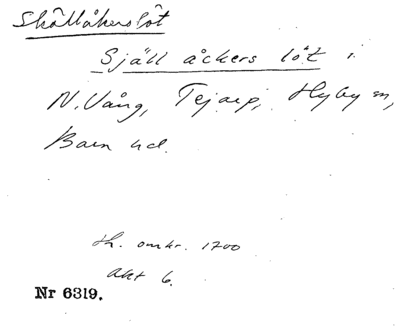 Skällåkerslöt
Själl åckers löt i
N. Vång, Tejarp, Hyby sn,
Bara hd.
th. omkr. 1700
akt 6.
Nr 6319.